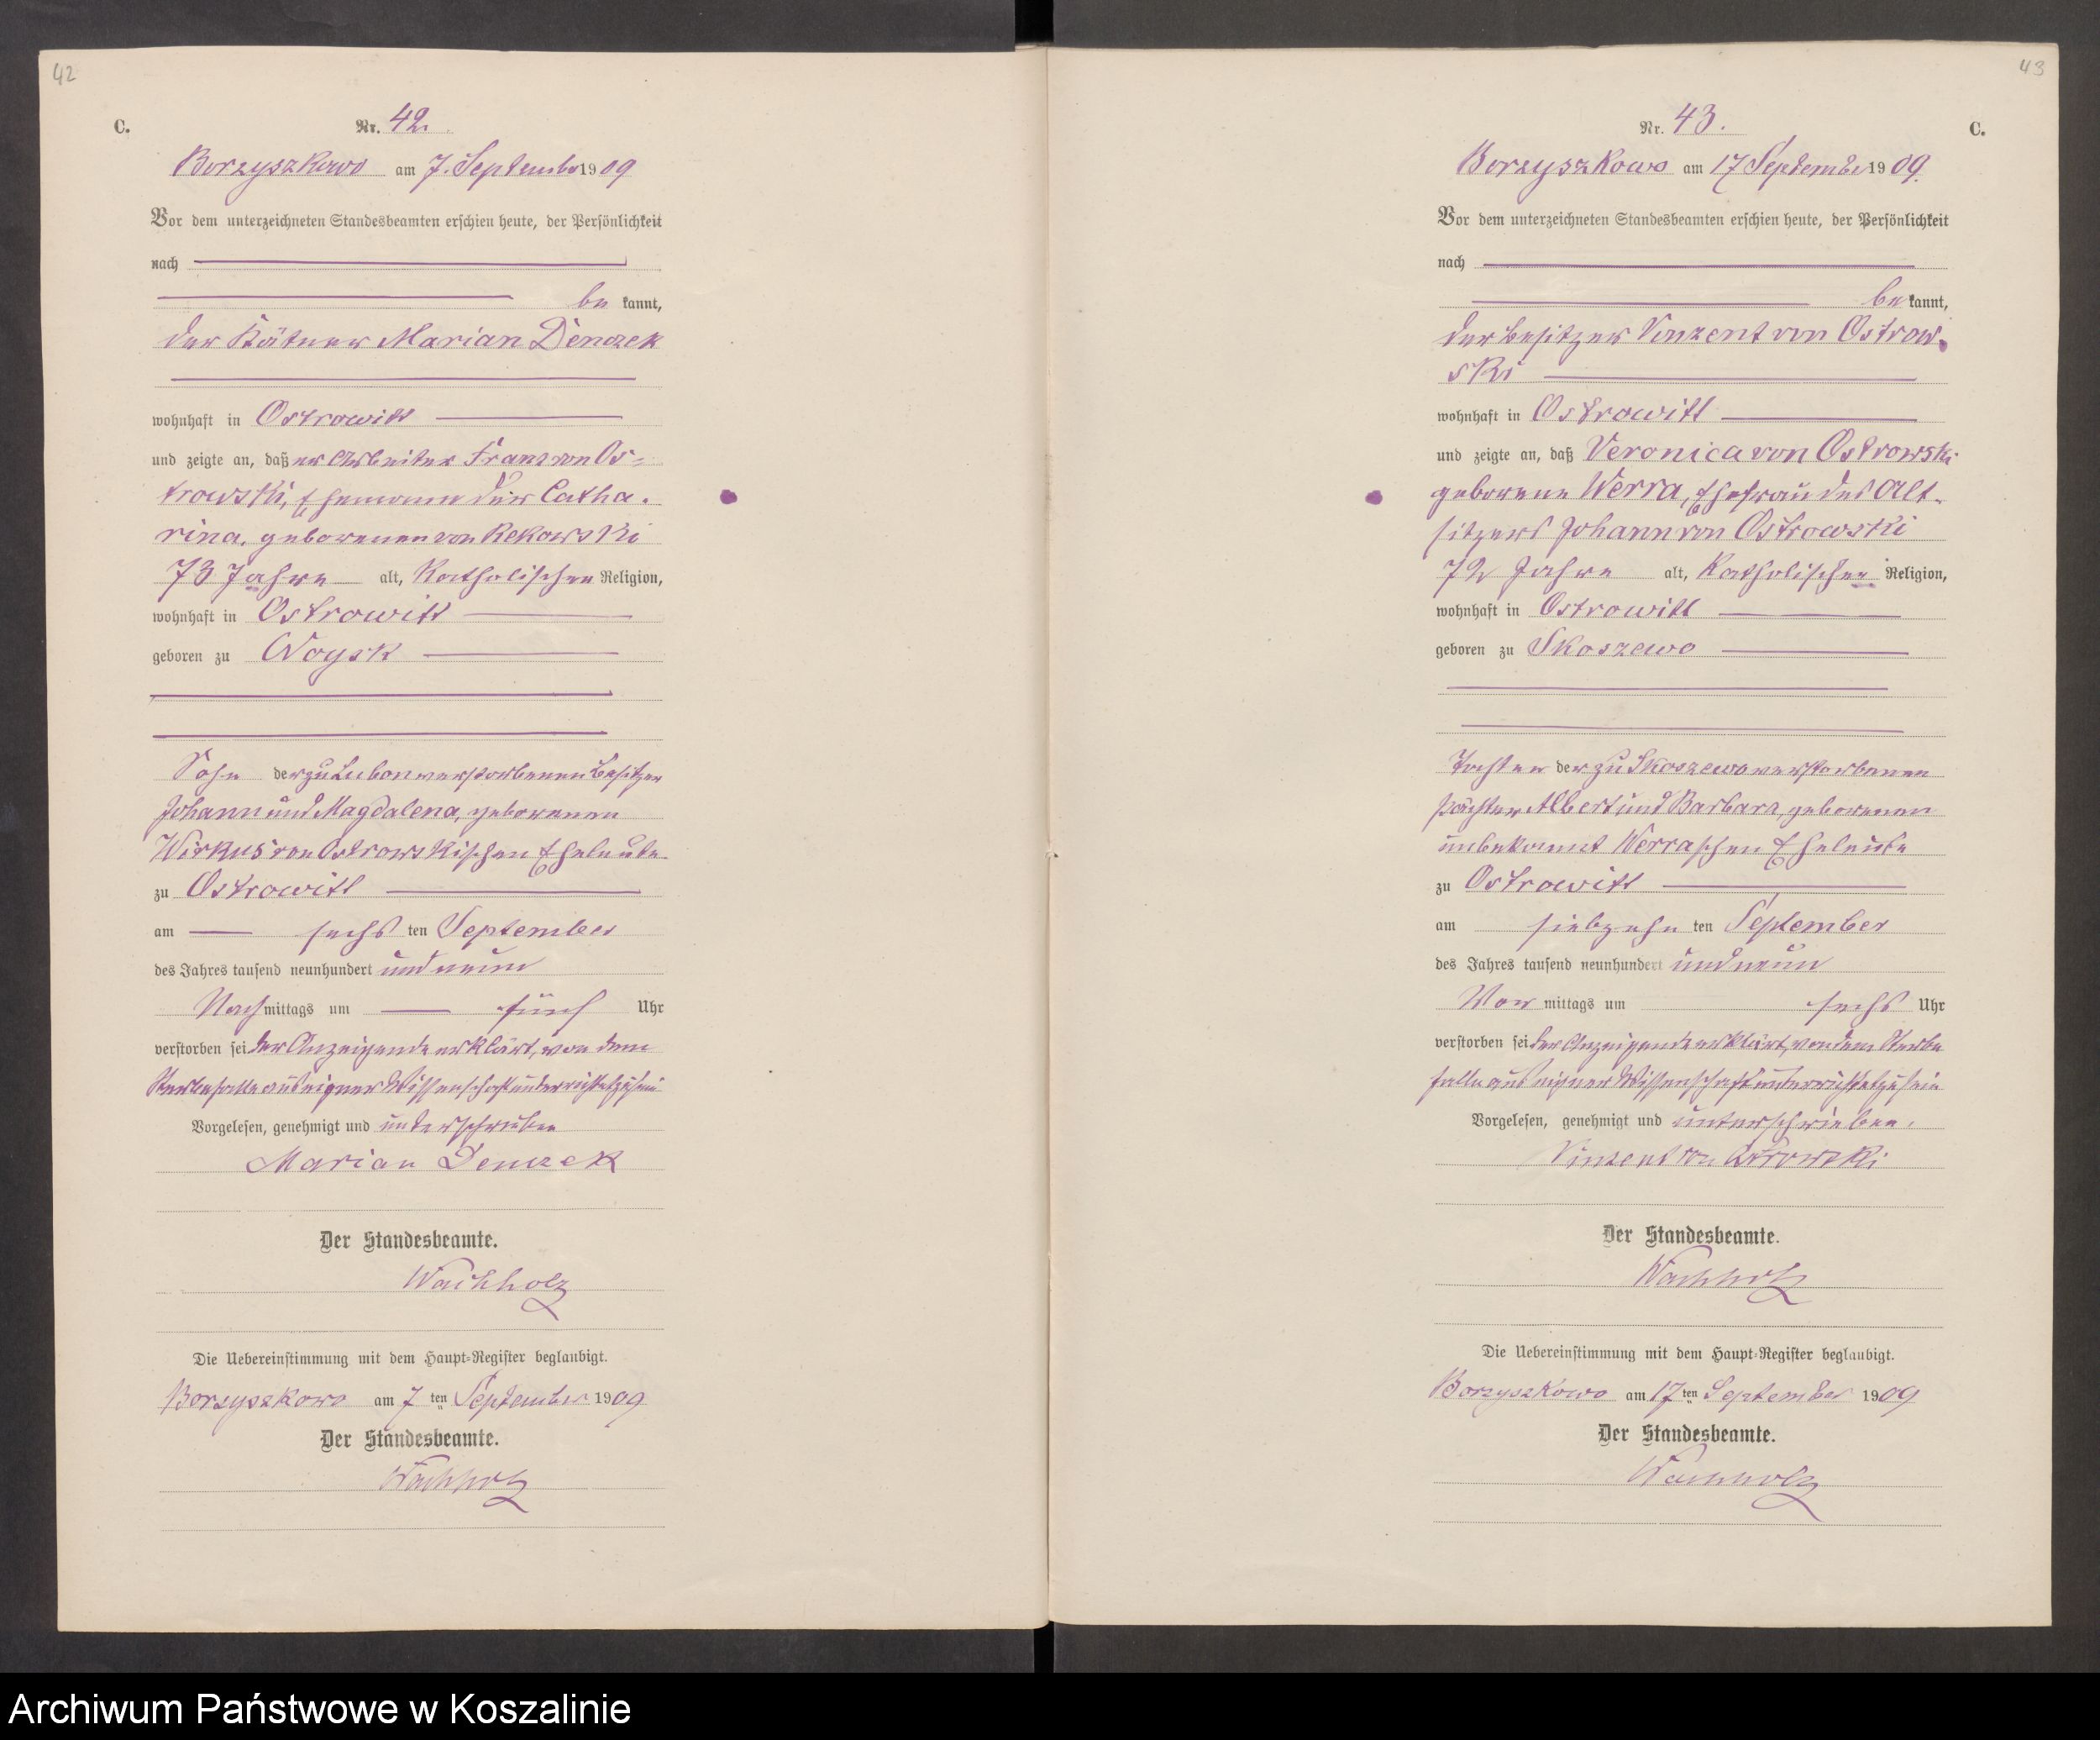 42
C.
Nr. 42.
Borzyszkowo am 7. September 1909
Vor dem unterzeichneten Standesbeamten erschien heute, der Persönlichkeit
nach
be kannt,
der Kätner Marian Denczek
wohnhaft in Ostrowitt
und zeigte an, daß er Arbeiter Franz von Os-
trowski, Ehemann der Catha-
rina, geborenen von Rekowski
73 Jahre alt, Katholischen Religion,
wohnhaft in Ostrowitt
geboren zu Woysk
Sohn der zu Lubon verstorbenen Besitzer
Johann und Magdalena, geborenen
Wirkus von Ostrowskischen Eheleute
zu Ostrowitt
am sechs ten September
des Jahres tausend neunhundert und neun
Nach mittags um fünf Uhr
verstorben sei der Anzeigende erklärt, von dem
Sterbefalle aus eigner Wissenschaft unterrichtet zu sein
Vorgelesen, genehmigt und unterschrieben
Marian Denczek
Der Standesbeamte.
Wachholz
Die Uebereinstimmung mit dem Haupt-Register beglaubigt.
Borzyszkowo am 7 ten September 1909
Der Standesbeamte.
Wachholz
43
Nr. 43.
C.
Borzyszkowo am 17 September 1909.
Vor dem unterzeichneten Standesbeamten erschien heute, der Persönlichkeit
nach
be kannt,
der Besitzer Vinzent von Ostrow-
ski
wohnhaft in Ostrowitt
und zeigte an, daß Veronica von Ostrowski
geborene Werra, Ehefrau des Alt-
sitzers Johann von Ostrowski
72 Jahre alt, Katholischer Religion,
wohnhaft in Ostrowitt
geboren zu Skoszewo
Tochter der zu Skoszewo verstorbenen
Pächter Albert und Barbara, geborenen
unbekannt Werraschen Eheleute
zu Ostrowitt
am siebzehn ten September
des Jahres tausend neunhundert und neun
Vor mittags um sechs Uhr
verstorben sei der Anzeigende erklärt, von dem Sterbe
falle aus eigner Wissenschaft unterrichtet zu sein
Vorgelesen, genehmigt und unterschrieben.
Vinzent von Ostrowski
Der Standesbeamte.
Wachholz
Die Uebereinstimmung mit dem Haupt-Register beglaubigt.
Borzyszkowo am 17 ten September 1909
Der Standesbeamte.
Wachholz
Archiwum Państwowe w Koszalinie